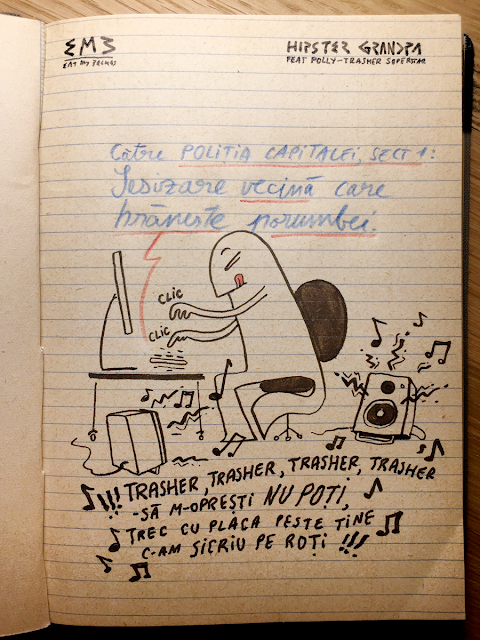 EM3
EAT MY PROMOS
HIPSTER GRANDPA
FEAT POLLY-TRASHER SUPERSTAR
Către POLIȚIA CAPITALEI, SECT 1:
Sesizare vecină care
hrănește porumbei.
CLIC
CLIC
!!! TRASHER, TRASHER, TRASHER, TRASHER
-SĂ M-OPREȘTI NU POȚI,
TREC CU PLACA PESTE TINE
C-AM SICRIU PE ROȚI !!!